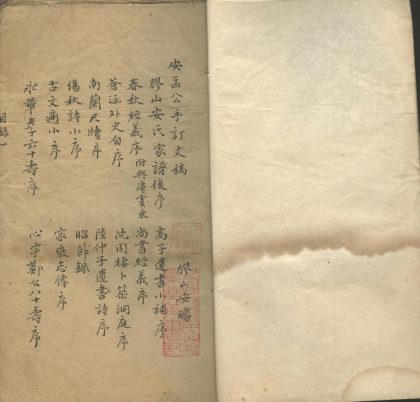 安孟公手訂文稿
膠山安璿
膠山安氏家譜後序
高子遺書小補序
春秋經義序附與屠雲永
尚書經義序
蒼涵外史自序
沈園棲卜築洞庭序
南蘭尺牘序
陸仲子遺書詩序
傷秋詩小序
昭節錄
古文適小序
家乘志傳序
永華老子六十壽序
心宇鄭公八十壽序
目錄一